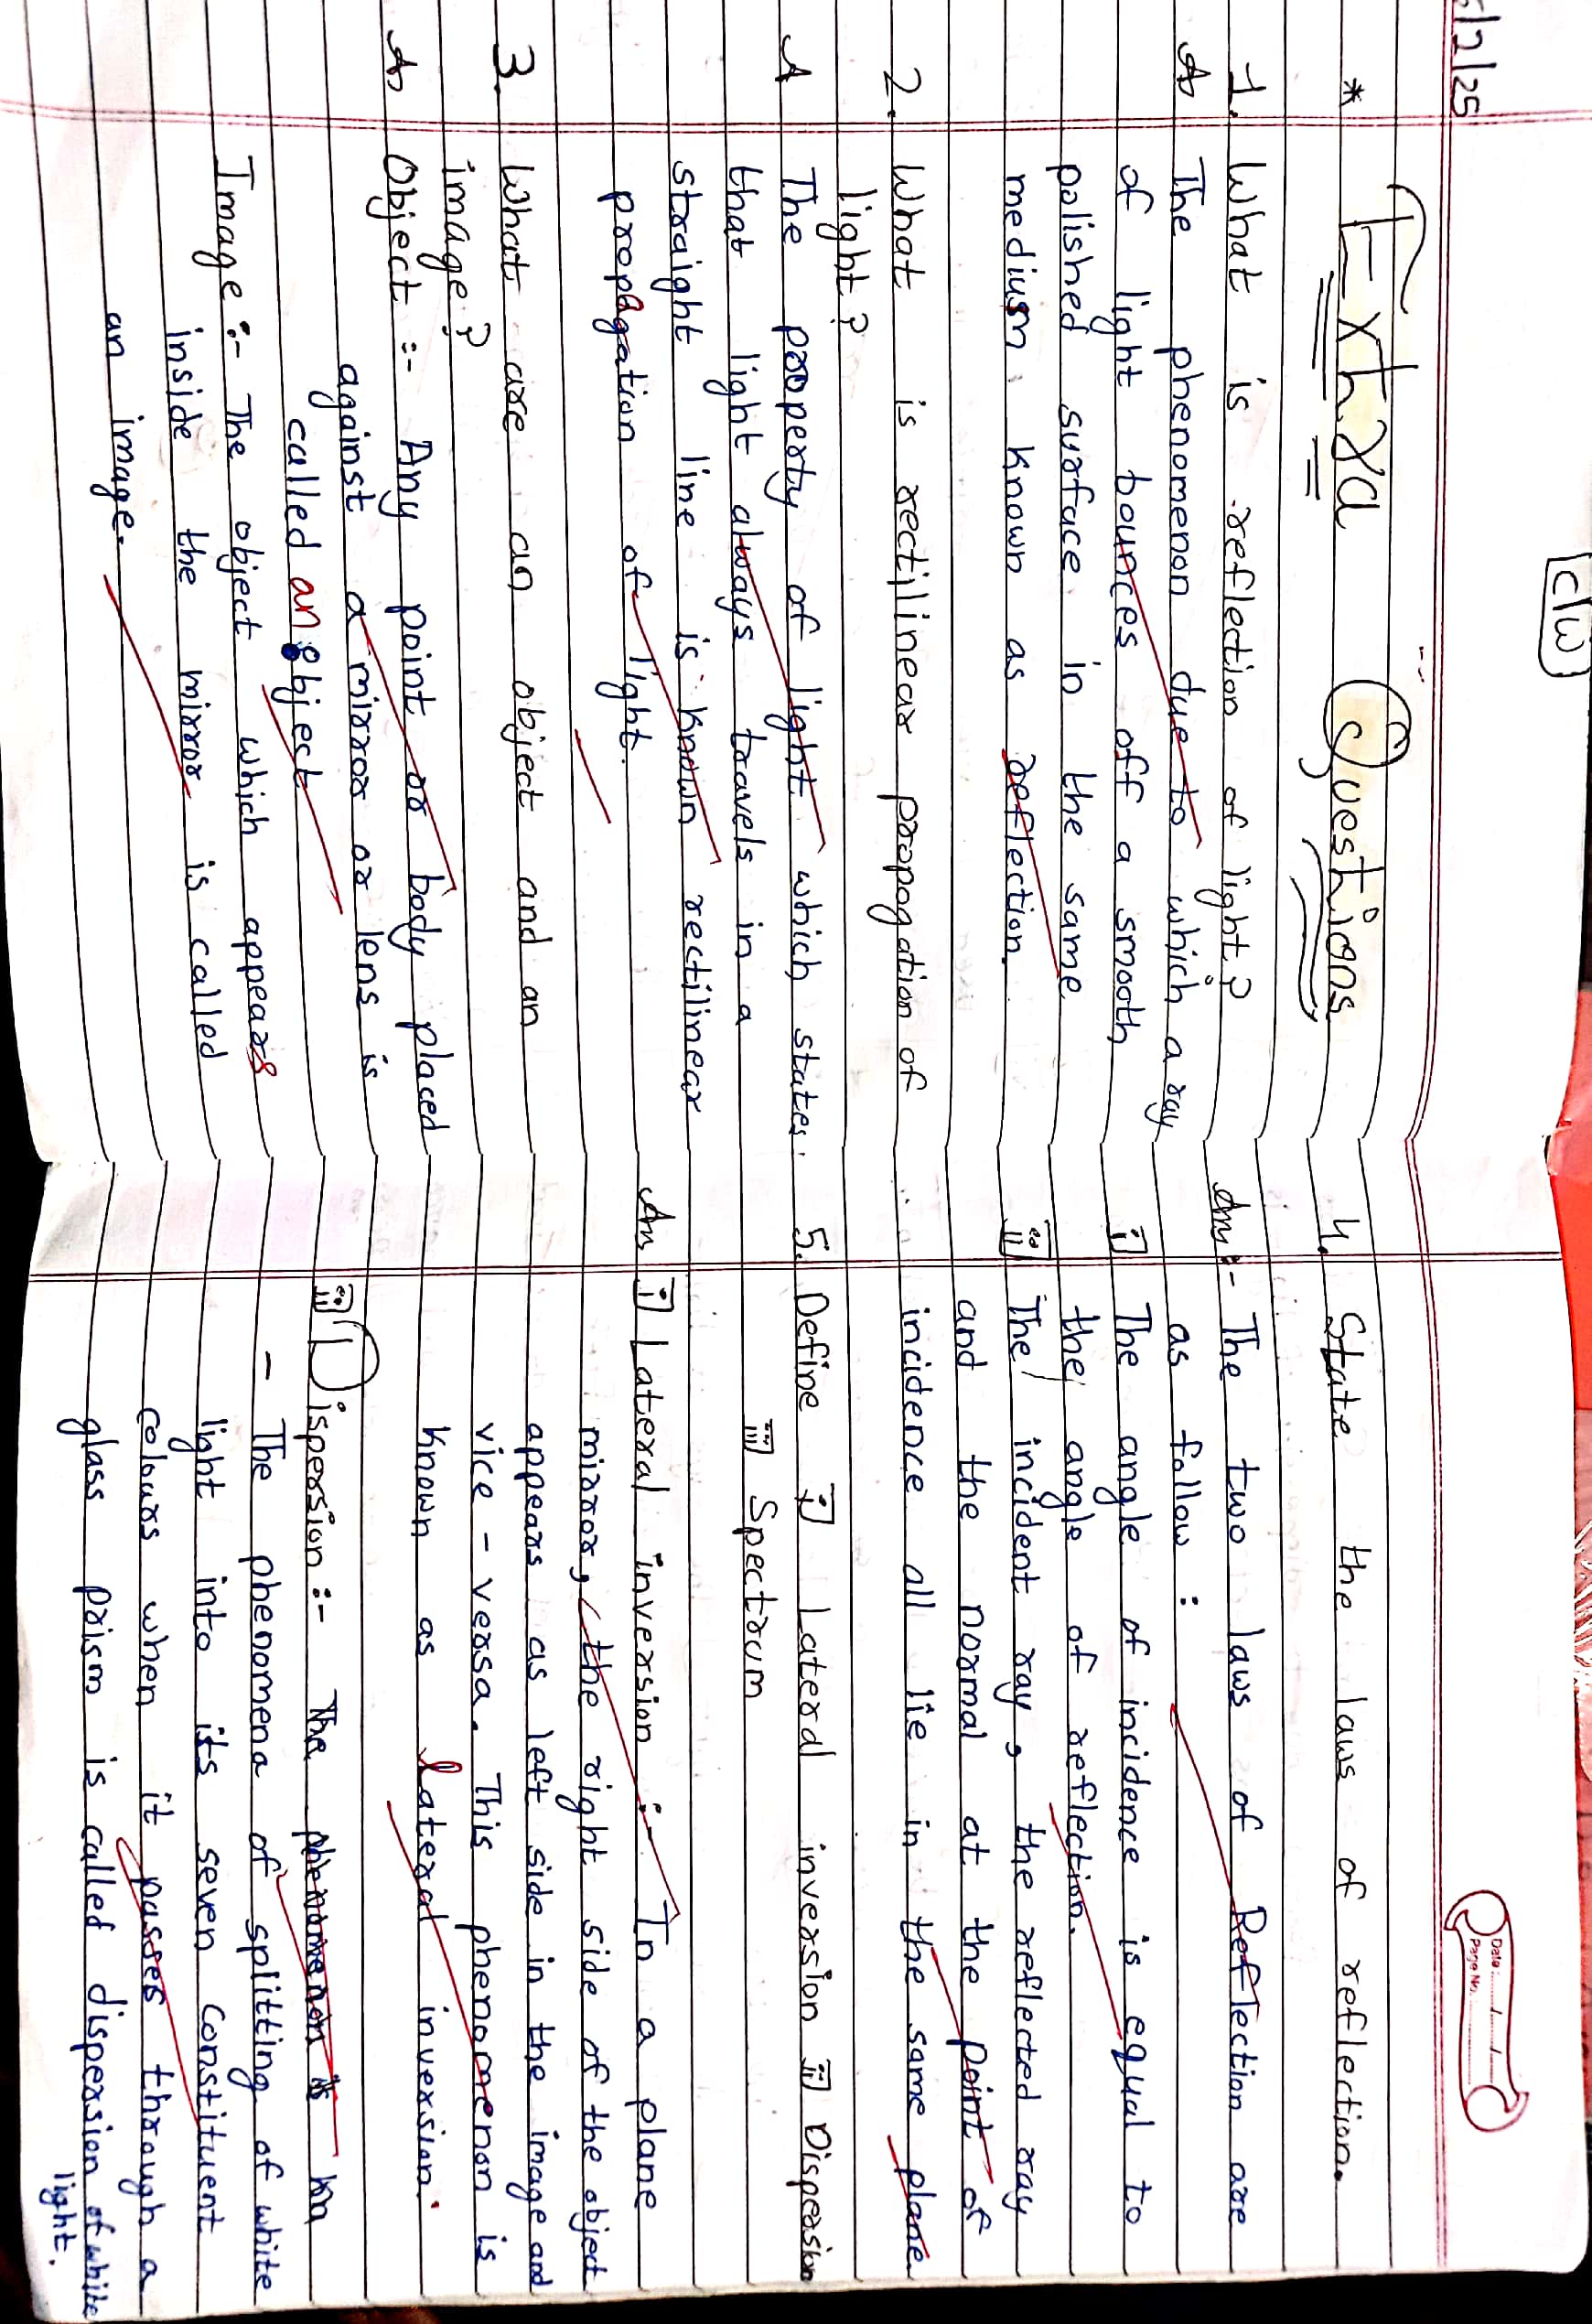 5/2/25
C/W
* Extra Questions
1. What is reflection of light?
A The phenomenon due to which a ray
of light bounces off a smooth,
polished surface in the same
medium known as reflection.
2. What is rectilinear propogation of
light?
A The property of light which states
that light always travels in a
straight line is known rectilinear
propagation of light.
3. What are an object and an
image?
A Object :- Any point or body placed
against a mirror or lens is
called an object
Image :- The object which appears
inside the mirror is called
an image.
Date : ....../....../......
Page No. ..............
4. State the laws of reflection.
Ans :- The two laws of Reflection are
as follow :
i The angle of incidence is equal to
the angle of reflection.
ii The incident ray, the reflected ray
and the normal at the point of
incidence all lie in the same plane
5. Define i Lateral inversion ii Dispersion
iii Spectrum
An i Lateral inversion :- In a plane
mirror, the right side of the object
appears as left side in the image and
vice - versa. This phenomenon is
known as lateral inversion.
ii Dispersion :- The phenomenon is kn
- The phenomena of spliting of white
light into its seven constituent
colours when it passes through a
glass prism is called dispersion of white
light.